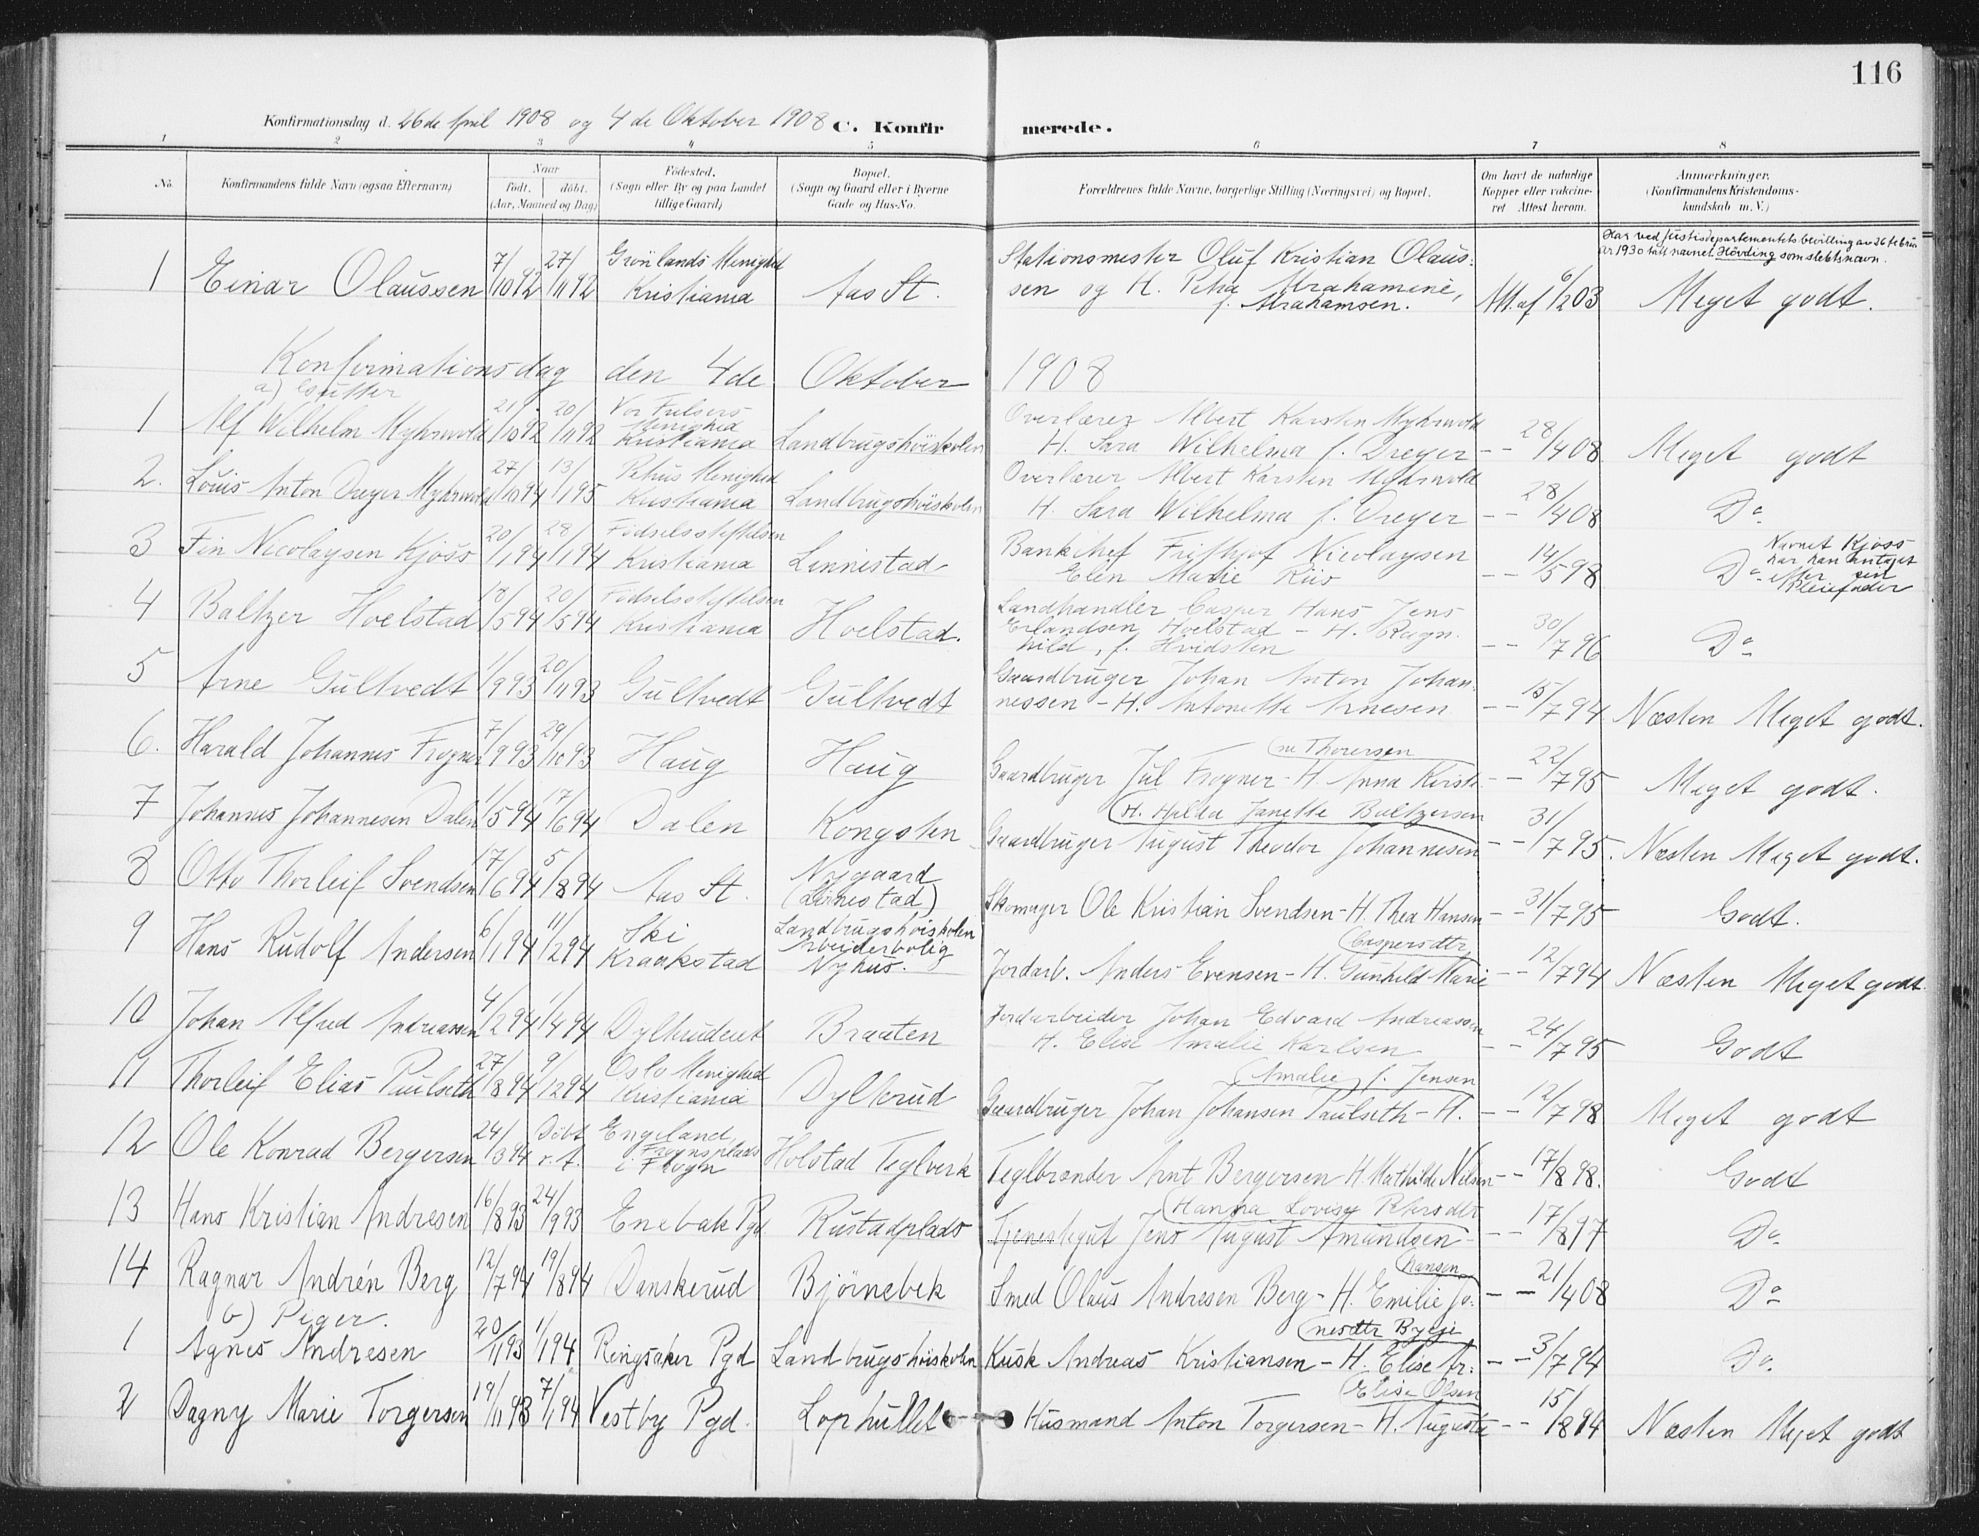 116
Konfirmationsdag d. 26de April 1908 og 4de Oktober 1908 C. Konfirmerede.
1 2 3 4 5 6 7 8
No. Konfirmandens fulde Navn (ogsaa Efternavn) Naar født. døbt. (Aar, Maaned og Dag) Fødested. (Sogn eller By og paa Landet tillige Gaard) Bopæl. (Sogn og Gaard eller i Byerne Gade og Hus-No. Forældrenes fulde Navne, borgerlige Stilling (Næringsvei) og Bopæl. Om havt de naturlige Kopper eller vakcineret Attest herom. Anmærkninger. (Konfirmandens Kristendomskundskab m. V.)
Har ved Justisdepartementets bevilling av 26 februar 1930 tatt navnet Hövding som slektsnavn.
1 Einar Olaussen 7/10 92 27/11 92 Grönlands Menighed Kristiania Aas St. Stationsmester Oluf Kristian Olaussen og H. Petra Abrahamine, f. Abrahamsen. Att. af 6/2 03 Meget godt.
Konfirmationsdag den 4de Oktober 1908
a) Gutter
1 Alf Wilhelm Myhrwold 21/10 92 20/11 92 Vor Frelsers Menighed Kristiania Landbrugshöiskolen Overlærer Albert Karsten Myhrwold H. Sara Wilhelma f. Dreyer -- 28/4 08 Meget godt
2. Louis Anton Dreyer Myhrwold 27/10 94 13/1 95 Petrus Menighed Kristiania Landbrugshöiskolen Overlærer Albert Karsten Myhrwold H. Sara Wilhelma f. Dreyer -- 28/4 08 Do
3 Fin Nicolaysen Kjöss 20/1 94 28/1 94 Födselsstiftelsen Kristiania Linnestad Bankchef Frithjof Nicolaysen Elen Marie Riis -- 14/5 98 Do Navnet Kjöss har han antaget efter sin Pleiefader
4 Baltzer Hoelstad 18/5 94 20/5 94 Födselsstiftelsen Kristiania Hoelstad. Landhandler Casper Hans Jens Erlandsen Hoelstad - H. Ragnhild, f. Hvidsten -- 30/7 96 Do
5 Arne Gultvedt 1/9 93 20/11 93 Gultvedt Gultvedt Gaardbruger Johan Anton Johannessen - H. Antonette Arnesen -- 15/7 94 Næsten Meget godt.
6. Harald Johannes Frogner 7/9 93 29/10 93 Haug Haug Gaardbruger Jul Frogner - H. Anna Kirstine Thorersen -- 22/7 95 Meget godt.
7 Johannes Johannesen Dalen 1/5 94 17/6 94 Dalen Kongsten Gaardbruger August Theodor Johannesen H. Hilda Janette Baltzersen -- 31/7 95. Næsten Meget godt.
8 Otto Thorleif Svendsen 17/6 94 5/8 94 Aas St. Nygaard (Linnestad) Skomager Ole Kristian Svendsen - H. Thea Hansen -- 31/7 95 Godt.
9 Hans Rudolf Andersen 6/1 94 11/2 94 Ski Kraakstad Landbrugshöiskolen Arbeiderbolig Nyhus. Jordarb. Anders Evensen - H. Gunhild Marie Caspersdtr -- 12/7 94 Næsten Meget godt.
10 Johan Alfred Andreassen 4/2 94 1/4 94 Dyltrudeiet Braaten Jordarbeider Johan Edvard Andreassen H. Elise Amalie Karlsen -- 24/7 95 Godt
11 Thorleif Elias Paulseth 27/8 94 9/12 94 Oslo Menighed Kristiania Dylterud Gaardbruger Johan Johansen Paulseth - H. Amalie f. Jensen -- 12/7 98 Meget godt
12 Ole Konrad Bergersen 24/3 94 Döbt Engeland, Frognsplads i Frogn Holstad Teglverk Teglbrænder Arnt Bergersen H. Mathilde Nilsen -- 17/8 98. Godt
13 Hans Kristian Andresen 16/8 93 24/9 93 Enebak Pgd Rustadplads Tjenestegut Jens August Amundsen Hanna Lovise Petersdtr -- 17/8 97 Do
14 Ragnar Andrén Berg 12/7 94 19/8 94 Danskerud Björnebek Smed Olaus Andresen Berg - H. Emilie Johansen -- 21/4 08 Do
b) Piger.
1 Agnes Andresen 20/11 93 1/1 94 Ringsaker Pgd Landbrugshöiskolen Kusk Andreas Kristiansen - H. Elise Arnesdtr Byeje -- 3/7 94 Do
2 Dagny Marie Torgersen 19/11 93 7/1 94 Vestby Pgd. Lophullet Husmand Anton Torgersen - H. Augusta Elise Olsen -- 15/8 94 Næsten Meget godt